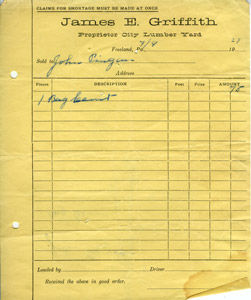 CLAIMS FOR SHORTAGE MUST BE MADE AT ONCE
James E. Griffith
Proprietor City Lumber Yard
Freeland, 7/9 19
Sold to John
Address
Pieces DESCRIPTION Feet PRICE AMOUNT
1 Bag Cement 75
Loaded by Driver
Received the above in good order.